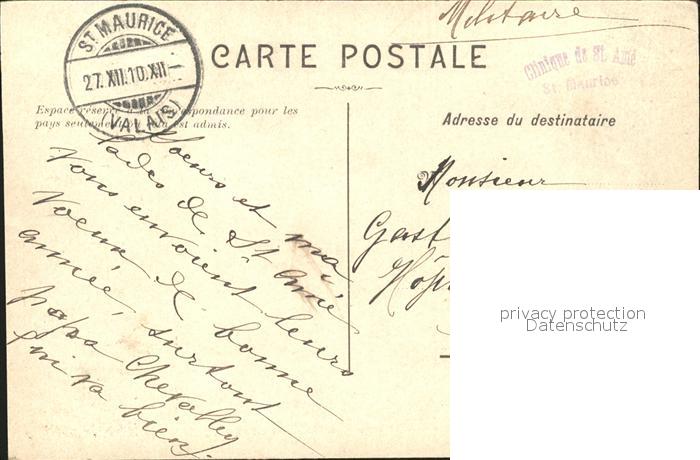 Militaire
ST. MAURICE
27.XII.10.XII-
(VALAIS)
CARTE POSTALE
Clinique de St. Amé
St. Maurice
Espace réservé à la correspondance pour les
pays seulement où cela est admis.
Adresse du destinataire
Soeurs et ma
lades de St Amé
vous envoient leurs
voeux de bonne
année, surtout
papa Chevalley
qui va bien.
Monsieur
Gast
Hôp
privacy protection
Datenschutz